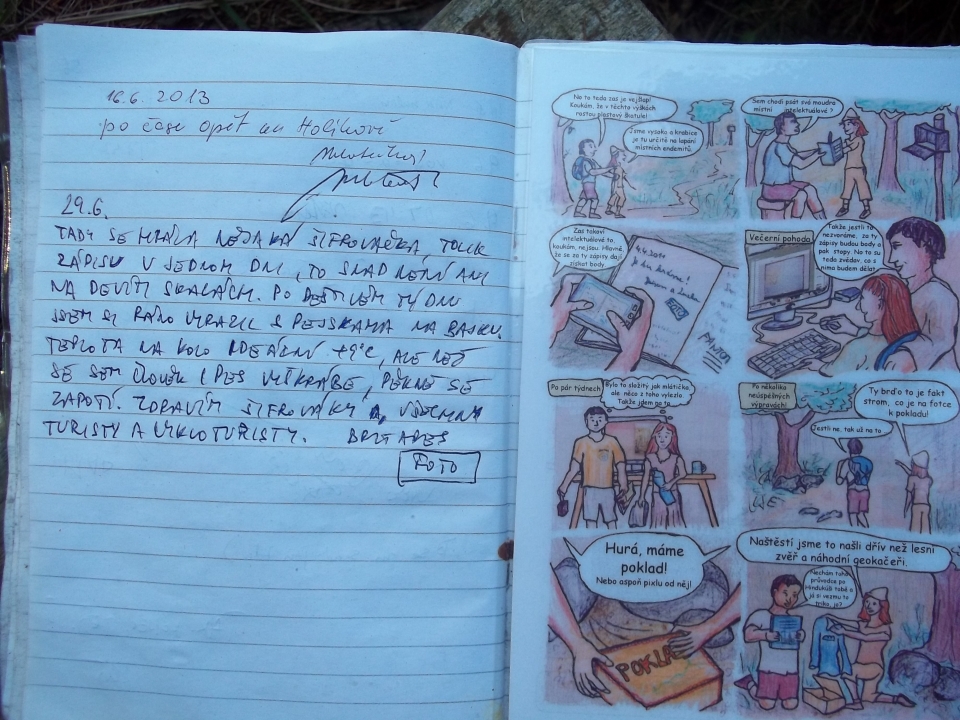 16.6. 2013
po čase opět na
29.6.
TADY SE HRÁLA NĚJAKÁ ŠIFROVAČKA, TOLIK
ZÁPISU V JEDNOM DNI, TO SNAD NENÍ ANI
NA DEVÍTI SKALÁCH. PO DEŠTIVÉM TÝDNU
JSEM SI RÁNO VYRAZIL S PEJSKAMA NA
TEPLOTA NA KOLO IDEÁLNÍ +9°C, ALE NEŽ
SE SEM ČLOVĚK I PES VYŠKRÁBE, PĚKNĚ SE
ZAPOTÍ. ZDRAVÍM ŠIFROVAČKY A VŠECHNY
TURISTY A CYKLOTURISTY.
FOTO
No to teda zas je vejšlap!
Koukám, že v těchto výškách
rostou plastový škatule!
Jsme vysoko a krabice
je tu určitě na lapání
místních endemitů.
Sem chodí psát svá moudra
místní intelektuálové?
Zas takoví
intelektuálové to,
koukám, nejsou. Hlavně,
že se za ty zápisy dají
získat body.
4.4. 2011
Večerní pohoda
Takže jestli to
nezvoráme, za ty
zápisy budou body a
pak stopy. No to su
teda zvědav, co s
nima budem dělat.
Po pár týdnech
Bylo to složitý jak mlátička,
ale něco z toho vylezlo.
Takže jdem po ta...
Po několika
neúspěšných
výpravách!
Ty brďo to je fakt
strom, co je na fotce
k pokladu!
Jestli ne, tak už na to...
Hurá, máme
poklad!
Nebo aspoň pixlu od něj!
POKLAD
Naštěstí jsme to našli dřív než lesní
zvěř a náhodní geokačeři.
Nechám tuhle
průvodce po
Hindukúši tobě a
já si vezmu to
triko, jo?